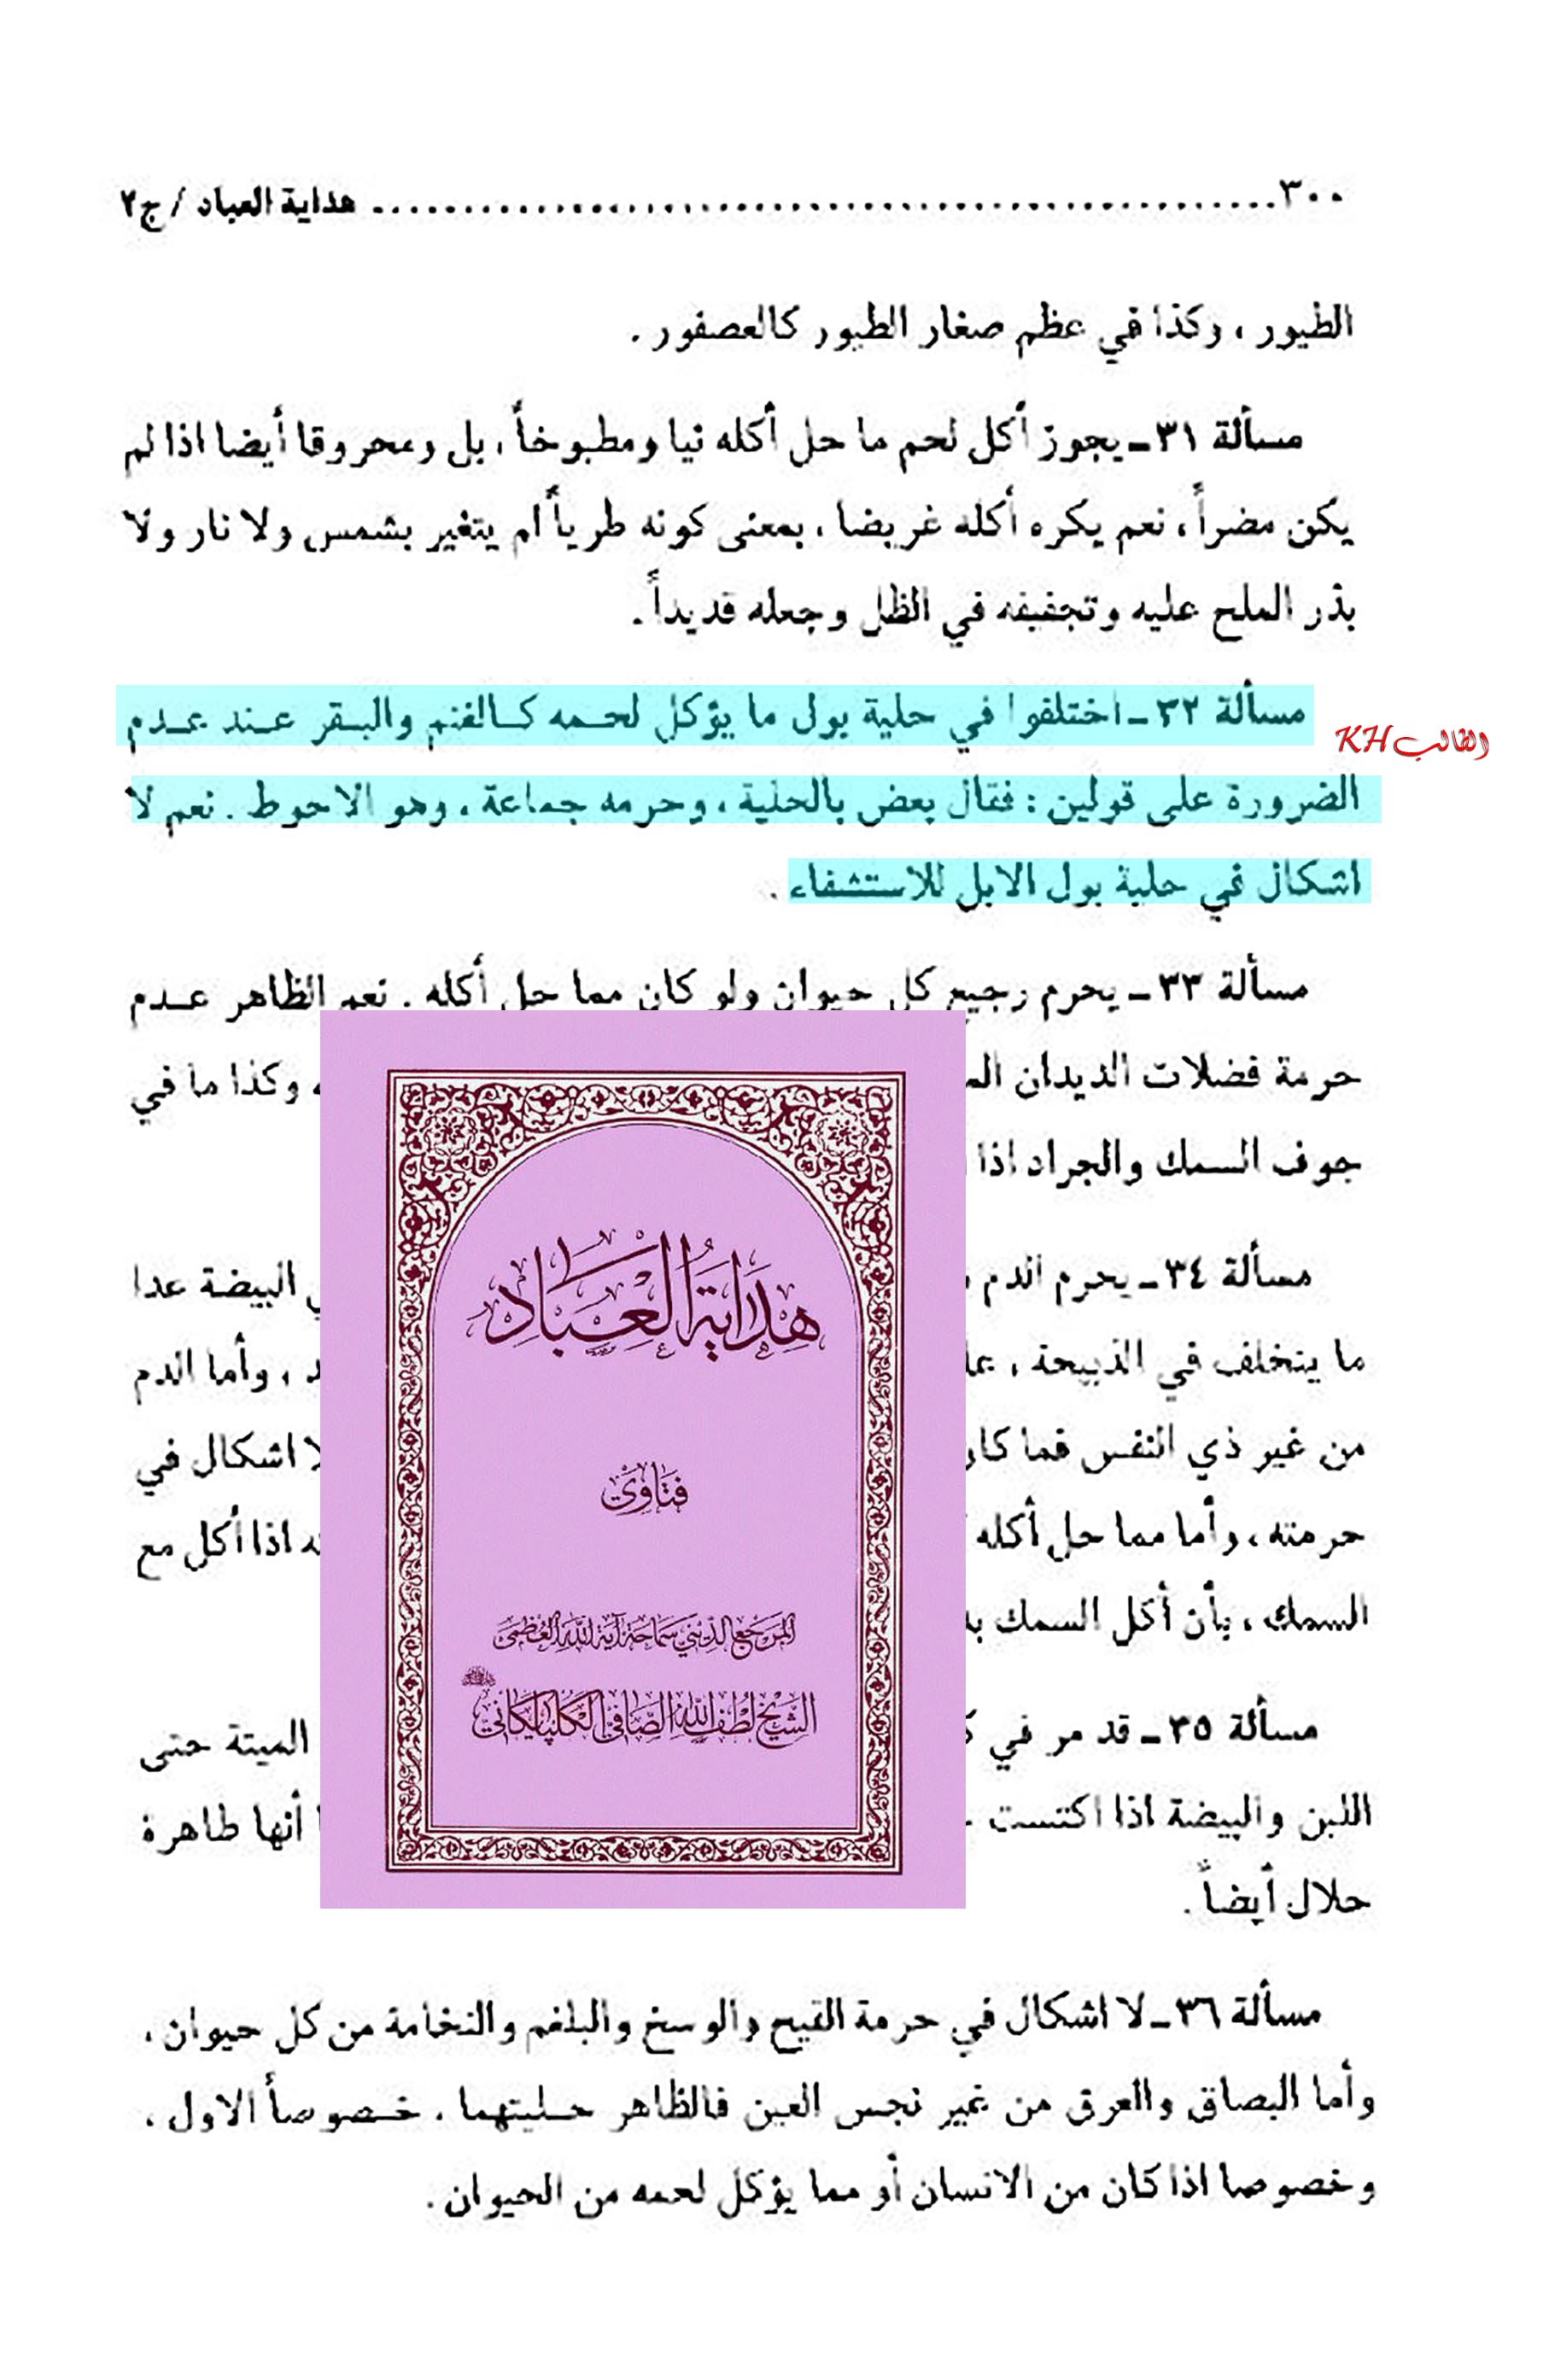 ٣٠٠ ........ هداية العباد / ج٢
الطيور ، وكذا في عظم صغار الطيور كالعصفور .
مسألة ٣١ ـ يجوز أكل لحم ما حل أكله نيا ومطبوخاً ، بل ومحروقا أيضا اذا لم
يكن مضراً ، نعم يكره أكله غريضا ، بمعنى كونه طرياً لم يتغير بشمس ولا نار ولا
بذر الملح عليه وتجفيفه في الظل وجعله قديداً .
مسألة ٣٢ ـ اختلفوا في حلية بول ما يؤكل لحمه كالغنم والبقر عند عدم
الضرورة على قولين : فقال بعض بالحلية ، وحرمه جماعة ، وهو الاحوط . نعم لا
اشكال في حلية بول الابل للاستشفاء .
الطالب KH
مسألة ٣٣ ـ يحرم رجيع كل حيوان ولو كان مما حل أكله . نعم الظاهر عدم
حرمة فضلات الديدان وكذا ما في
جوف السمك والجراد اذا
مسألة ٣٤ ـ يحرم الدم البيضة عدا
ما يتخلف في الذبيحة ، ، وأما الدم
من غير ذي النفس فما لا اشكال في
حرمته ، وأما مما حل أكله اذا أكل مع
السمك ، بأن أكل السمك
مسألة ٣٥ ـ قد مر في الميتة حتى
اللبن والبيضة اذا اكتست أنها طاهرة
حلال أيضاً .
هداية العباد
فتاوى
المرجع الديني سماحة آية الله العظمى
الشيخ لطف الله الصافي الگلپايگاني
مسألة ٣٦ ـ لا اشكال في حرمة القيح والوسخ والبلغم والنخامة من كل حيوان ،
وأما البصاق والعرق من غير نجس العين فالظاهر حليتهما ، خصوصاً الاول ،
وخصوصا اذا كان من الانسان أو مما يؤكل لحمه من الحيوان .